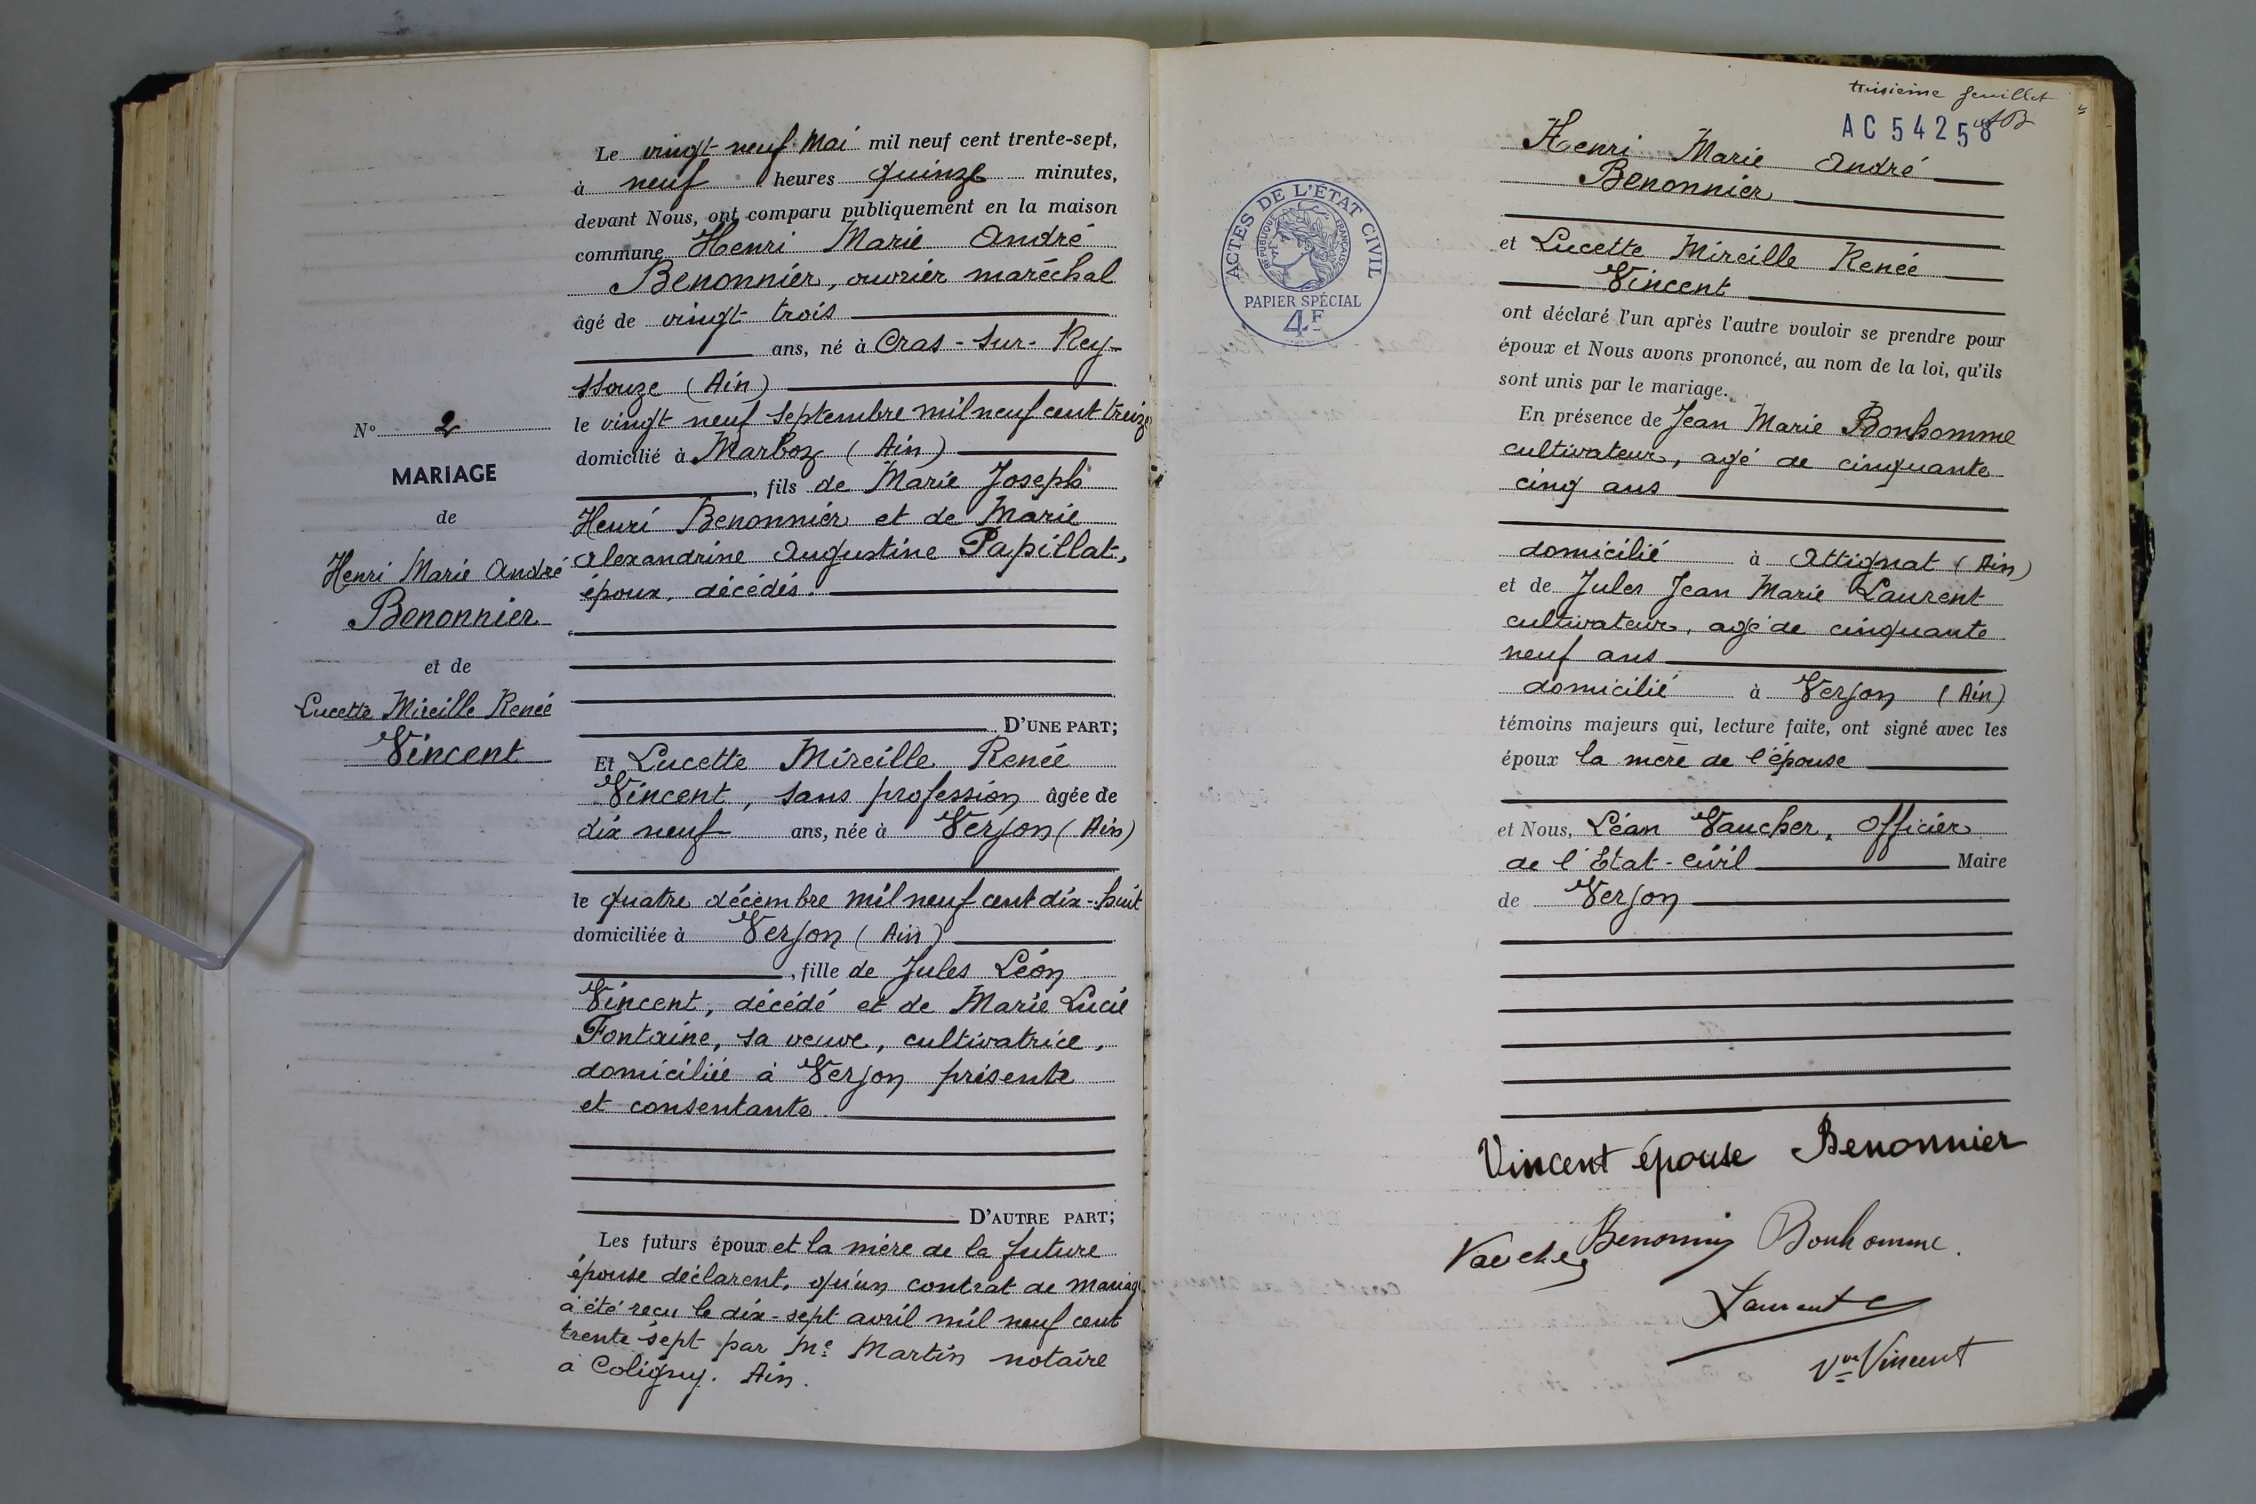 Le vingt neuf Mai mil neuf cent trente-sept,
à neuf heures quinze minutes,
devant Nous, ont comparu publiquement en la maison
commune Henri Marie André
Benonnier, ouvrier maréchal
âgé de vingt trois
ans, né à Cras-sur-Rey-
ssouze (Ain)
le vingt neuf septembre mil neuf cent treize
domicilié à Marboz (Ain)
, fils de Marie Joseph
Henri Benonnier et de Marie
Alexandrine Augustine Papillat,
époux, décédés.
D'UNE PART;
Et Lucette Mireille Renée
Vincent, sans profession âgée de
dix neuf ans, née à Verjon (Ain)
le quatre décembre mil neuf cent dix-huit
domiciliée à Verjon (Ain)
, fille de Jules Léon
Vincent, décédé et de Marie Lucie
Fontaine, sa veuve, cultivatrice,
domiciliée à Verjon présente
et consentante
D'AUTRE PART;
Les futurs époux et la mère de la future
épouse déclarent, qu'un contrat de mariage
a été reçu le dix-sept avril mil neuf cent
trente sept par Me Martin notaire
à Coligny. Ain.
N° 2
MARIAGE
de
Henri Marie André
Benonnier
et de
Lucette Mireille Renée
Vincent
troisième feuillet
AB
AC 54258
ACTES DE L'ÉTAT CIVIL
RÉPUBLIQUE FRANÇAISE
PAPIER SPÉCIAL
4F
Henri Marie André
Benonnier
et Lucette Mireille Renée
Vincent
ont déclaré l'un après l'autre vouloir se prendre pour
époux et Nous avons prononcé, au nom de la loi, qu'ils
sont unis par le mariage.
En présence de Jean Marie Bonhomme
cultivateur, agé de cinquante
cinq ans
domicilié à Attignat (Ain)
et de Jules Jean Marie Laurent
cultivateur, agé de cinquante
neuf ans
domicilié à Verjon (Ain)
témoins majeurs qui, lecture faite, ont signé avec les
époux la mère de l'épouse
et Nous, Léan Vaucher, Officier
de l'Etat-Civil Maire
de Verjon
Vincent épouse Benonnier
Vaucher Benonnier Bonhomme.
Laurent
Vve Vincent